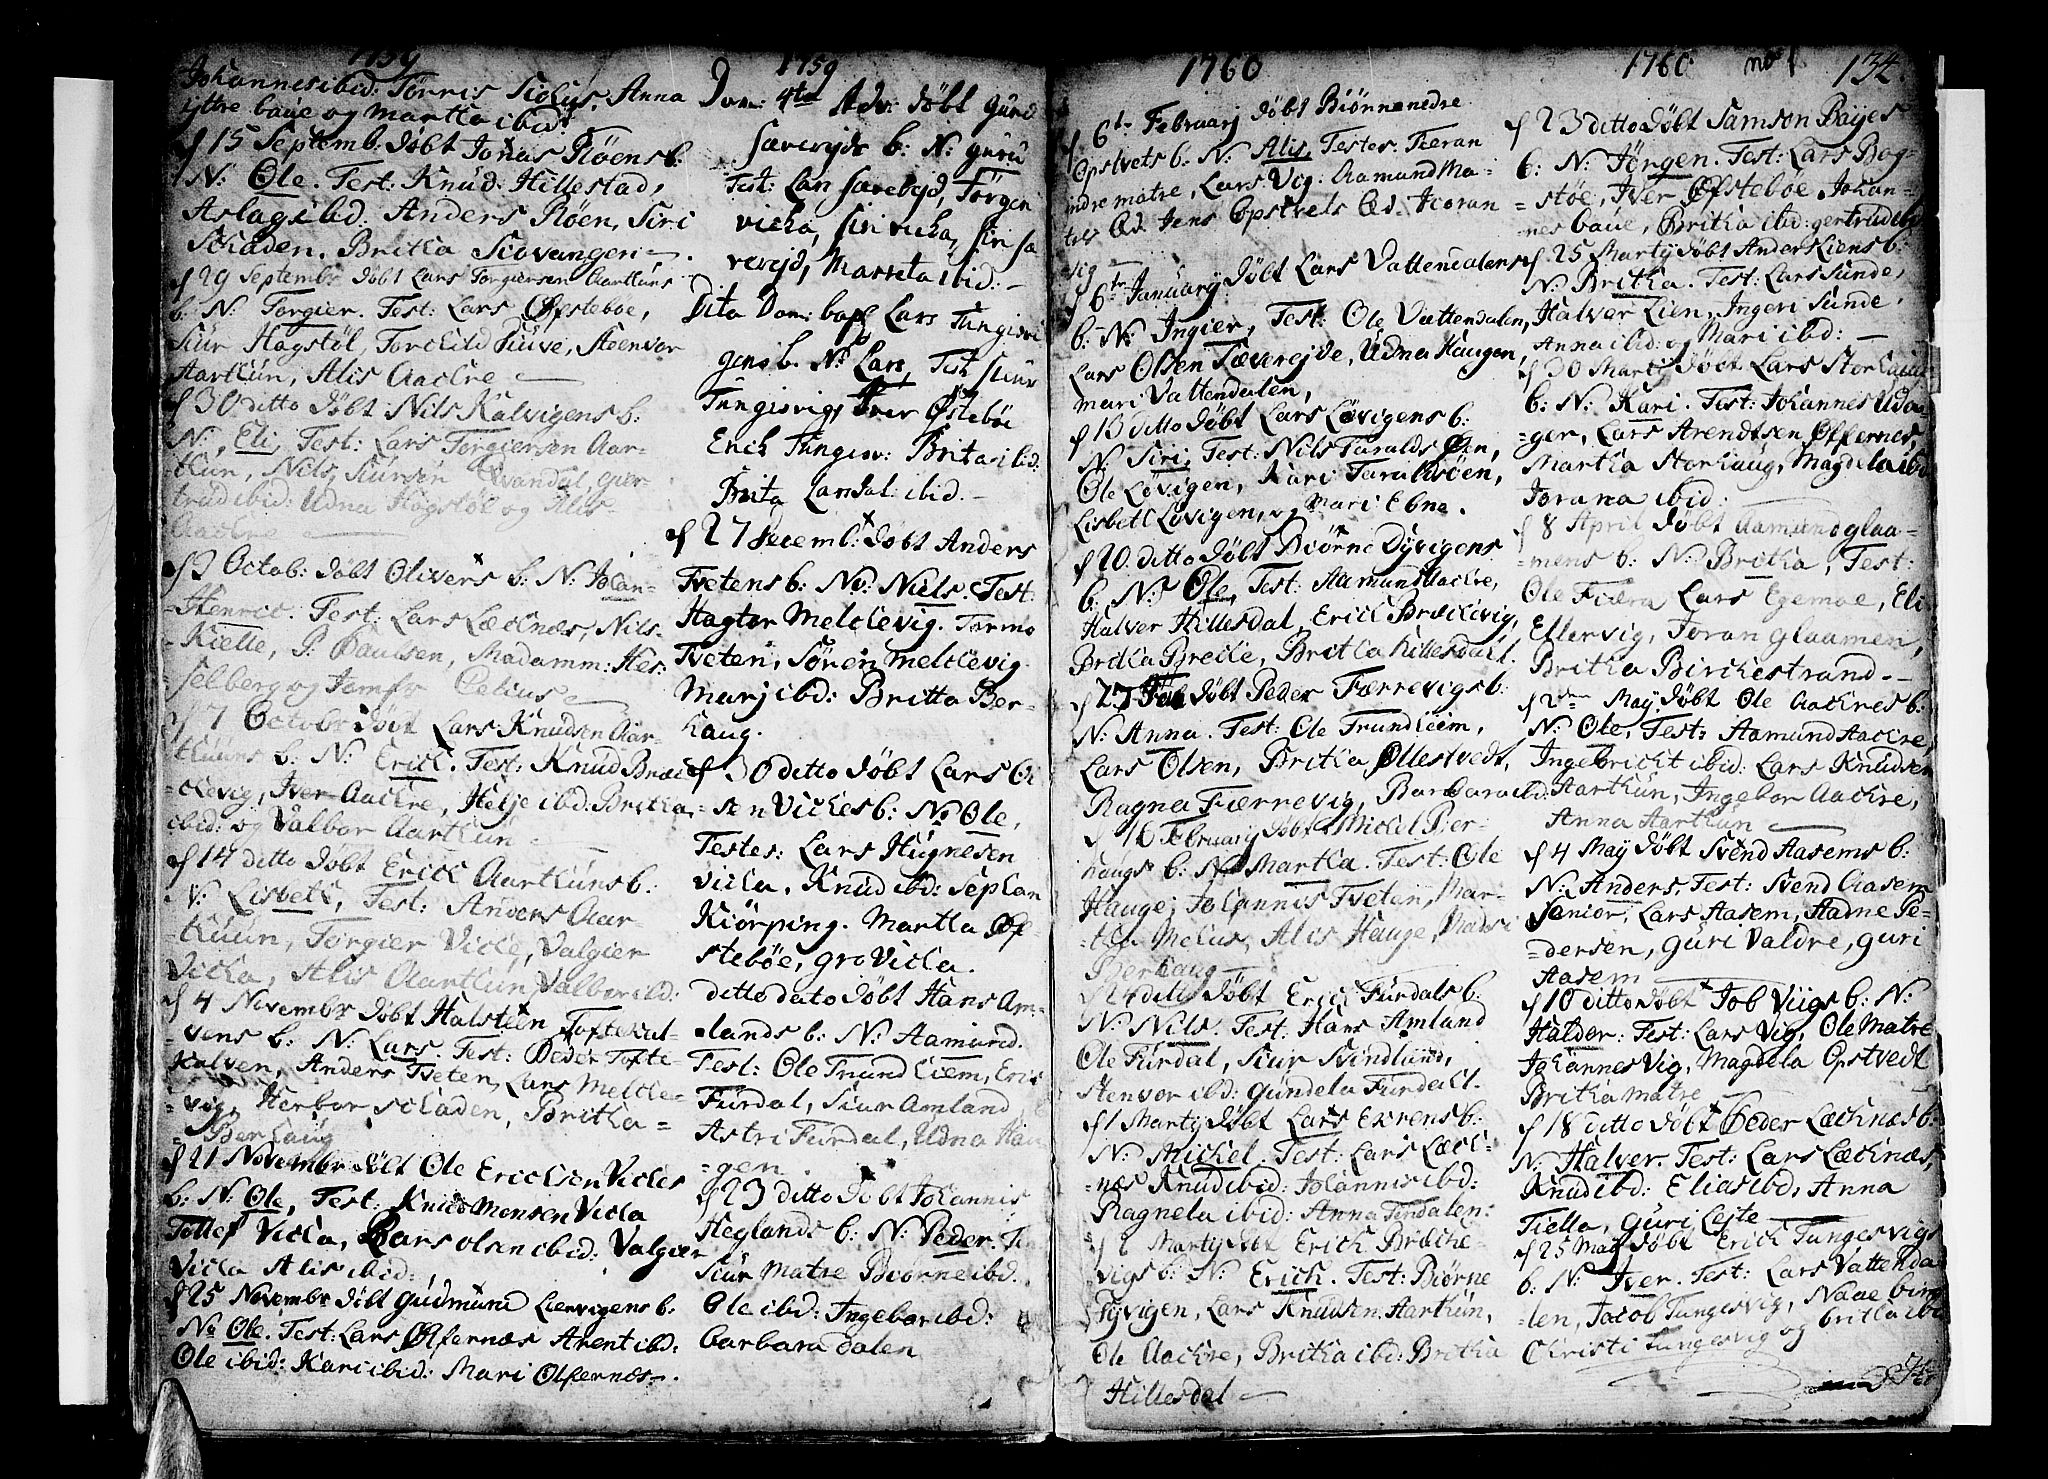 1759
Johannes ibid: Torris Anna
yttre baue og Martha ibid:
15 Septemb: døbt Jonas Røens b:
N: Ole. Test: Knud Hillestad,
Aslag ibid. Anders Røen, Siri
Schaden. Britha Stovangen
29 Septembr døbt Lars Torgiersen Aarthuns
b: N: Torgier. Test: Lars Øfsteboe,
Siur Hagstøl, Torchild Tuve, Steenvor
Aarthun, Alis Aachre
30 ditto døbt Nils Kalvigens b:
N: Eli, Test: Lars Torgiersen Aar-
thun, Nils Siursen Qvandal, gier-
trud ibid: Udna Hogstøl og Alis
Aachre
Octob: døbt Olivers b: N: Johan-
Henric. Test: Lars Læchnæs, Nils
Kielle, P: Paulsen, Madamm: Hes-
selberg og Jomfr Celius
7 Octobr døbt Lars Knudsen Aar-
thuns b: N: Erich. Test: Knud Bræ-
chevig, Iver Aachre, Helje ibid: Britha
ibid: og Valbor Aarthun
14 ditto døbt Erich Aarthuns b:
N: Lisbeth, Test: Anders Aar-
-thuun, Torgier Viche, Valgier
Vicha, Alis Aarthun, Valbor ibid:
4 Novembr døbt Halsteen Toftekal-
vens b: N: Lars. Test: Peder Tofte-
kalven, Anders Tveten, Lars Melche-
vig, Herbor Schaden, Britha
Berhaug
21 Novembr døbt Ole Erichsen Viches
b: N: Ole, Test: Knud Monsen Vicha
Tollef Vicha, Lars Olsen ibid: Valgier
Vicha Alis ibid:
25 Novembr døbt Gudmund Liervigens b.
N: Ole. Test: Lars Ølfernæs Arent ibid:
Ole ibid: Kari ibid: Mari Olfernæs.
1759
Dom: 4te Adv: døbt Gund
Sæverejds b: N: Guru
Test: Lars Sævereyd, Torgen
vicka, Siri vicka, Siri Sæ
vereyd, Marreta ibid:
Dito Dom: bapt Lars Tungisvi
gens b. N: Lars, Test Siur
Tungisvig, Iver Østebø
Erich Tungisv: Brita ibid.
Brita Landal ibid.
27 Decemb: døbt Anders
Tvetens b: N: Niels. Test:
Hagtor Melchevig. Tormo
Tveten, Søren Melchevig
Marj ibid: Britta Ber-
haug.
30 ditto døbt Lars Ol
-sen Viches b: N: Ole,
Testes: Lars Hugnesen
Vicha. Knud ibid: Sephan
Kiørping. Martha Øf-
stebøe, gro Vicha.
ditto dato døbt Hans Am-
-lands b: N: Aamund.
Test: Ole Trundhiem, Eric
Furdal, Siur Amland
Astri Furdal, Udna Hau
-gen
23 ditto døbt Johannis
Heglands b: N: Peder.
Siur Matre Biørne ibid.
Ole ibid: Ingebor ibid:
barbara dalen
1760
6te Februarj døbt Biønn nedre
Opstvets b: N: Alis, Testes: Tieran
indre matre, Lars Vig: Aamund Ma-
tre Jens Opstvets
vig
6te January døbt Lars Vattendalens
b: N: Ingier, Test: Ole Vattendalen,
Lars Olsen Tæverejde, Udna Haugen,
mari Vattendalen,
13 ditto døbt Lars Løvigens b:
N: Siri, Test: Nils Taralds Øen,
Ole Løvigen, Kari Taraldsøen,
Lisbeth Løvigen, og Mari Ebne.
20 ditto døbt Biørne Dyvigens
b: N: Ole, Test: Aamund Aachre,
Halver Hillesdal, Erich Bræchevig,
Britha Breche, Britha Hillesdahl.
27 døbt Peder Færrevigs b:
N: Anna. Test: Ole Trundheim,
Lars Olsen, Britha Øllestvedt,
Ragna Færrevig, Barbara ibid:
16 February døbt Michel Bier-
haugs b: N: Martha. Test: Ole
Hauge, Johannis Tveten, Mar-
-tha Melus, Alis Hauge, Madsi
Berhaug
24 ditto døbt Erich Furdals b:
N: Nils. Test: Hans Amland
Ole Furdal, Siur Svindland,
Stenvor ibid: Gundela Furdahl.
1 Martij døbt Lars Exrens b:
N: Michel. Test: Lars Læch-
-nes Knud ibid: Johannis ibd:
Ragnela ibid: Anna Tondalen:
2 Martij døbt Erich Bræche-
vigs b: N: Erich. Test: Biørne
Tyvigen, Lars Knudsen Aarthun,
Ole Aachre, Britha ibid: Britha
Hillesdal
1760 no 1 134.
23 ditto døbt Samson Bøyes
b: N: Jørgen. Test: Lars Bog-
-støe, Iver Øfstebøe Johan-
nes baue, Britha ibid: gertrud ibd
25 Martij døbt Anders Liens b:
N: Britha. Test: Lars Sunde,
Halver Lien, Ingeri Sunde,
Anna ibid: og Mari ibid:
30 Martij døbt Lars Storhaug
b: N: Kari. Test: Johannes Uda-
-ger, Lars Arendtsen Øffernes,
Martha Storhaug, Magdela ibd
Jorana ibid:
8 April døbt Aamund glaa-
-mens b: N: Britha, Test:
Ole Fiæra Lars Egemoe, Eli
Ellervig, Joran glaamen,
Britha Birchestrand.
2den May døbt Ole Aachres b:
N: Ole, Test: Aamund Aachre,
Ingebricht ibid: Lars Knudsen
Aarthun, Ingebor Aachre,
Anna Aarthun
4 May døbt Svend Aasems b:
N: Anders, Test: Svend Aasem
Senior, Lars Aasem, Aadne Pe-
-dersen, guri Valdre, guri
Aasem
10 ditto døbt Job Viigs b: N:
Haldor: Test: Lars Vig, Ole Matre
Johannes Vig, Magdela Opstvedt
Britha Matre
18 ditto døbt Peder Læchnæs b:
N: Halver. Test: Lars Læchnæs,
Knud ibd: Elias ibd, Anna
Tiella, guri Leite
25 May døbt Erich Tungesvigs
b: N: Iver. Test: Lars Vattenda
-len, Jacob Tungesvig,
Christi Tungesvig og britha ibd